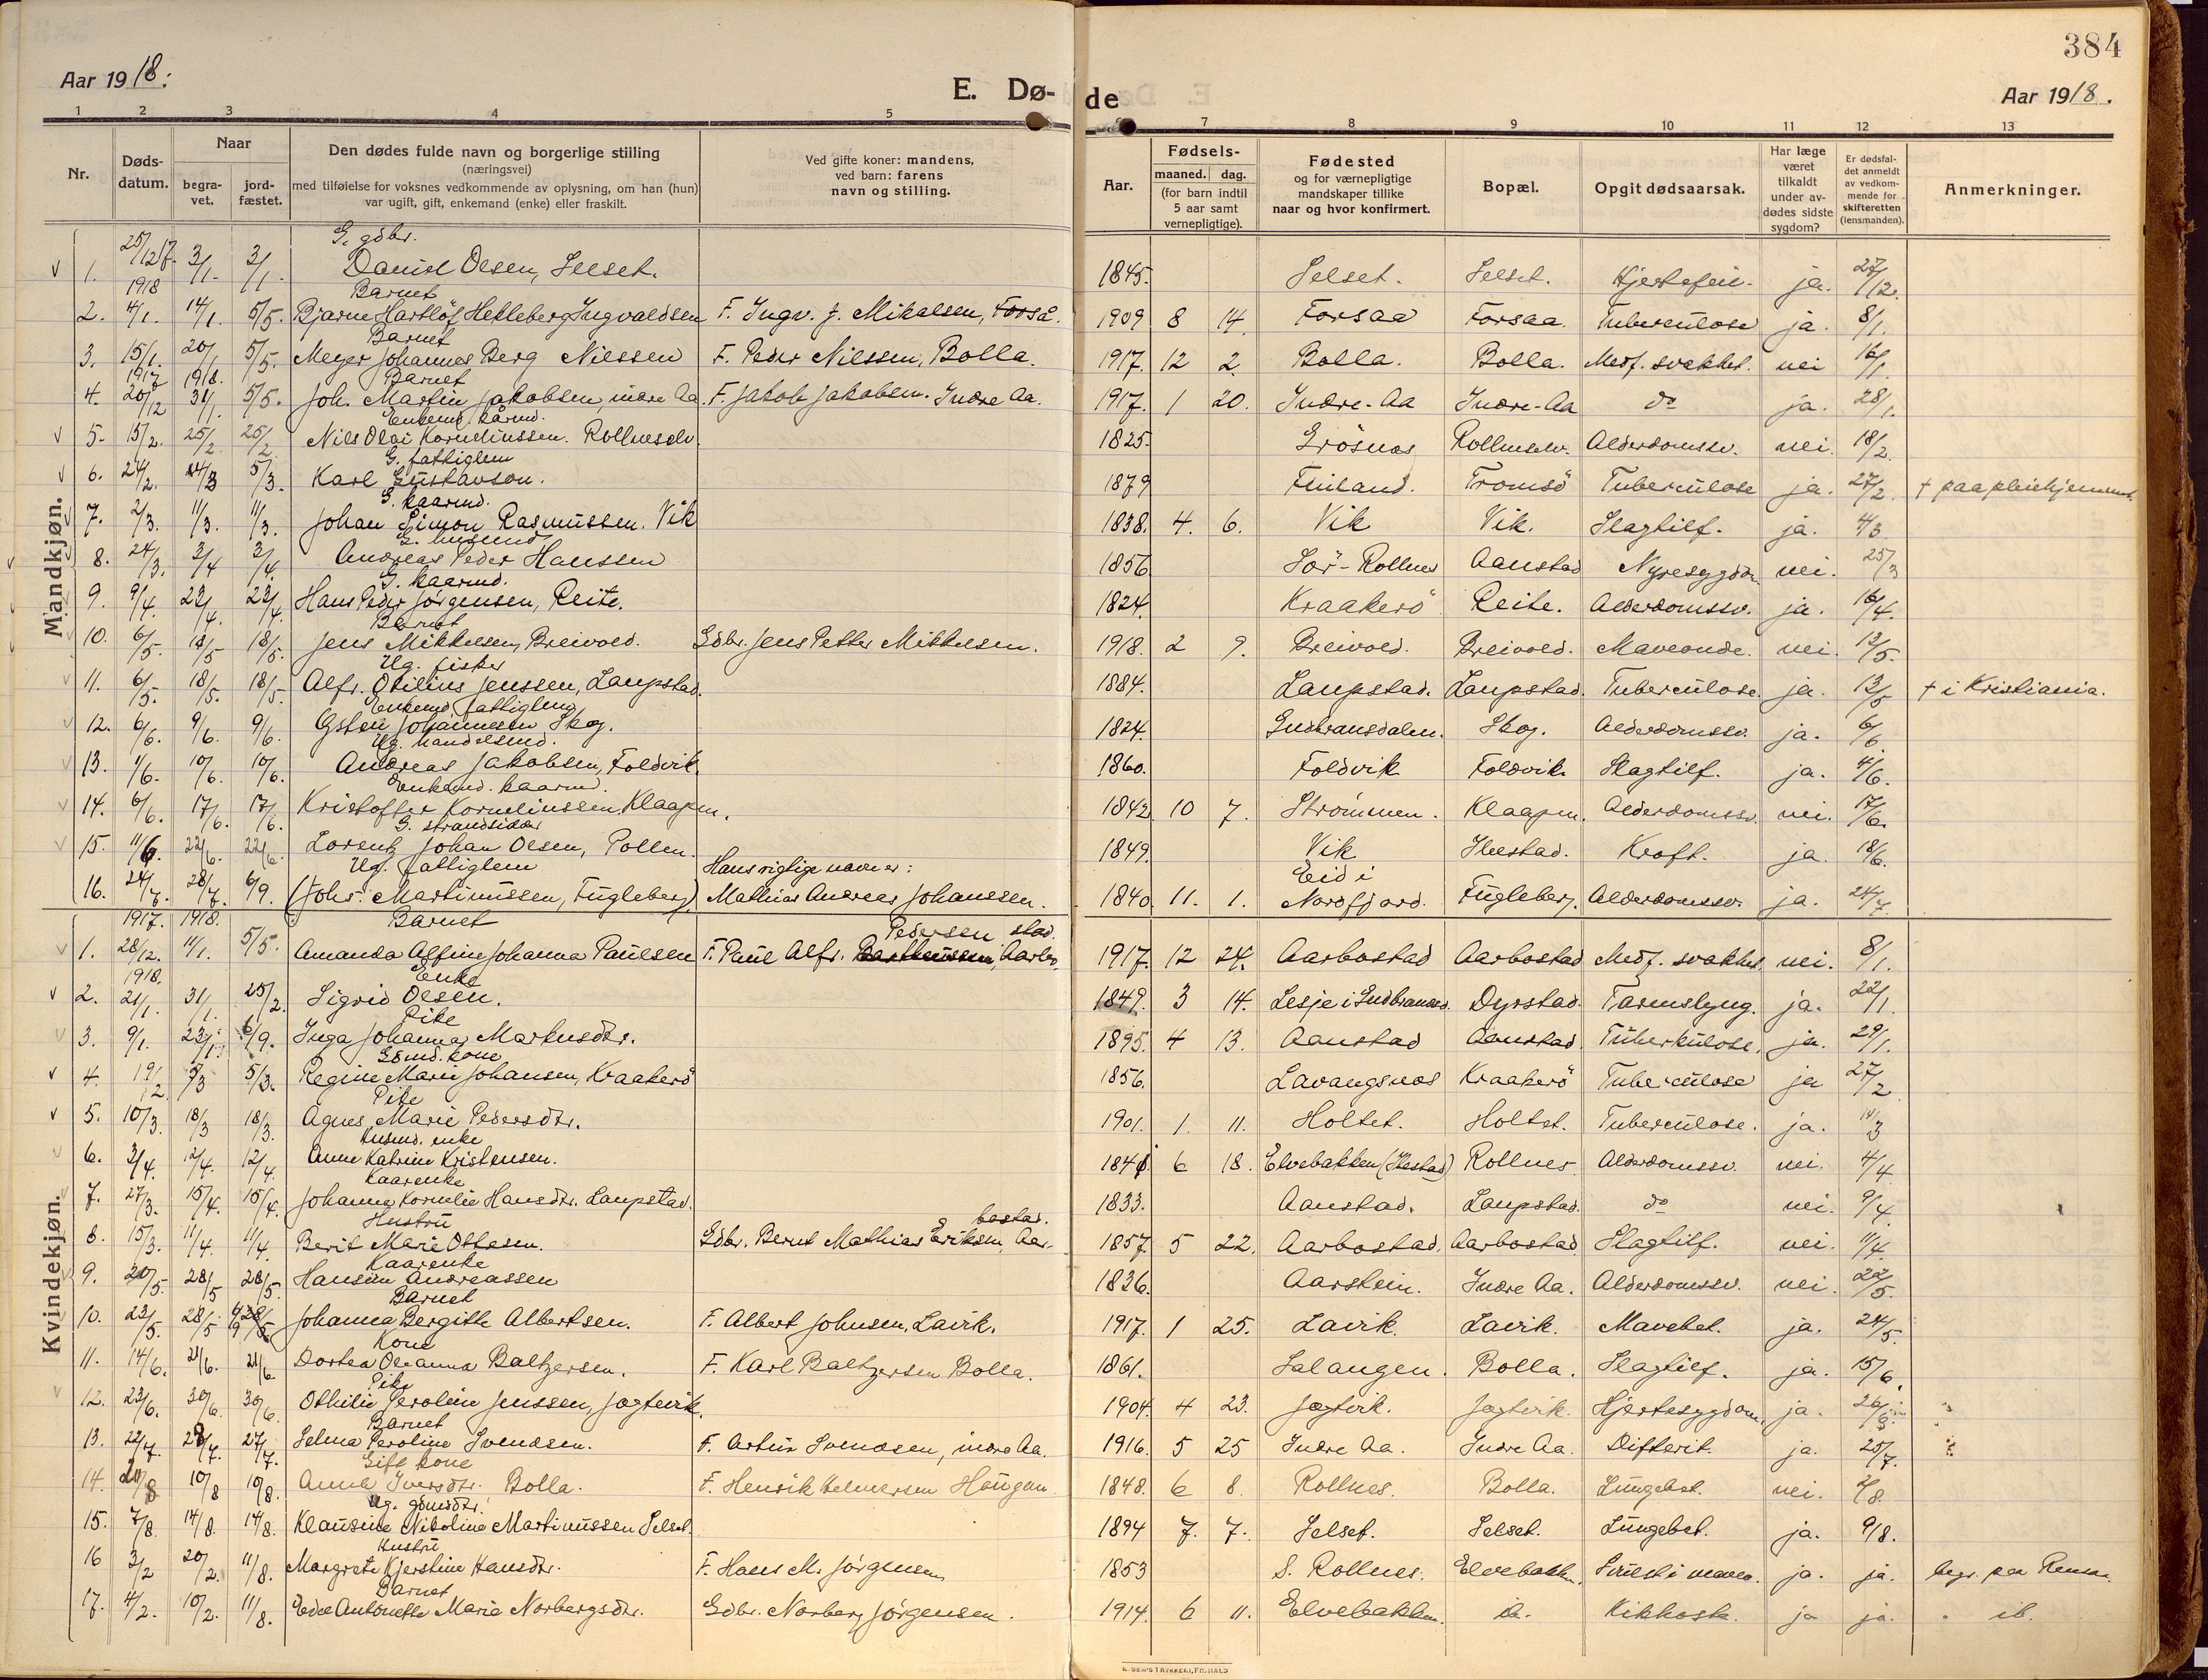 384
Aar 1918.
E. Dø-
de
Aar 1918.
1 2 3 4 5
7 8 9 10 11 12 13
Nr.
Døds-
datum.
Naar
begra-
vet.
jord-
fæstet.
Den dødes fulde navn og borgerlige stilling
(næringsvei)
med tilføielse for voksnes vedkommende av oplysning, om han (hun)
var ugift, gift, enkemand (enke) eller fraskilt.
Ved gifte koner: mandens,
ved barn: farens
navn og stilling.
Aar.
Fødsels-
maaned. dag.
(for barn indtil
5 aar samt
vernepligtige).
Fødested
og for værnepligtige
mandskaper tillike
naar og hvor konfirmert.
Bopæl.
Opgit dødsaarsak.
Har læge
været
tilkaldt
under av-
dødes sidste
sygdom?
Er dødsfal-
det anmeldt
av vedkom-
mende for
skifteretten
(lensmanden).
Anmerkninger.
Mandkjøn.
G. gdbr.
1. 25/12 17. 3/1. 3/1. Daniel Olsen, Selset. 1845. Selset. Selset. Hjertefeil. ja. 27/12.
1918 Barnet
2. 4/1. 14/1. 5/5. Bjarne Hartløf Helleberg Ingvaldsen F. Ingv. J. Mikalsen, Forså. 1909 8 14. Forsaa Forsaa. Tuberculose ja. 8/1.
Barnet
3. 15/1. 20/1 5/5. Meyer Johannes Berg Nilssen F. Peder Nilssen, Bolla. 1917. 12 2. Bolla. Bolla. Medf. svakhet. nei 16/1.
1917 1918. Barnet
4. 20/12 31/1. 5/5. Joh. Martin Jakobsen, indre Aa. F. Jakob Jakobsen. Indre Aa. 1917. 1 20. Indre-Aa Indre-Aa do ja. 28/1.
Enkemd. kårmd.
5. 15/2. 25/2. 25/2 Nils Olai Korneliussen. Rollneselv. 1825. Grøsnes Rollneselv. Alderdomssv. nei. 18/2.
G. fattiglem
6. 24/2. 4/3 5/3. Karl Gustavson. 1879 Finland. Tromsø Tuberculose ja. 27/2. + paa pleiehjemmet.
G. kaarmd.
7. 2/3. 11/3. 11/3. Johan Simon Rasmussen. Vik 1838. 4. 6. Vik Vik. Slagtilf. ja. 4/3
G. husmand
8. 24/3. 3/4 3/4. Andreas Peder Hanssen 1856. Sør-Rollnes Aanstad Nyresygdom nei. 25/3
G. kaarmd.
9. 9/4. 23/4. 23/4. Hans Peder Jørgensen, Reite. 1824. Kraakerø Reite. Alderdomssv. ja. 16/4.
Barnet
10. 6/5. 18/5 18/5. Jens Mikkelsen, Breivold. Gdbr. Jens Petter Mikkelsen. 1918. 2 9. Breivold. Breivold. Maveonde. nei. 12/5.
Ug. fisker
11. 6/5. 18/5. 18/5. Alfr. Otilius Jenssen, Laupstad. 1884. Laupstad. Laupstad. Tuberculose. ja. 13/5 + i Kristiania.
Enkemd. fattiglem
12. 6/6. 9/6. 9/6. Østen Johannesen Skog. 1824. Gudbransdalen. Skog. Alderdomssv. ja. 6/6.
Ug. handelsmd.
13. 1/6. 10/6. 10/6. Andreas Jakobsen, Foldvik. 1860. Foldvik Foldvik. Slagtilf. ja. 4/6.
Enkemd. kaarmd.
14. 6/6. 17/6. 17/6. Kristoffer Korneliussen, Klaapen. 1842 10 7. Strømmen. Klaapen. Alderdomssv. nei. 17/6.
G. strandsidder
15. 11/6. 22/6. 22/6. Lorentz Johan Olsen, Pollen. 1849. Vik Ibestad. Kræft. ja. 18/6.
Ug. fattiglem Hans rigtige navn er: Eid i
16. 24/7. 28/7. 6/9. (Johs. Martinussen, Fugleberg) Mathias Andreas Johansen. 1840. 11. 1. Nordfjord. Fugleberg. Alderdomssv. ja. 24/7.
Kvindekjøn.
1917. 1918. Barnet Pedersen stad.
1. 28/12. 11/1. 5/5. Amanda Alfine Johanna Paulsen F. Paul Alfr. Aarbo- 1917. 12 24. Aarbostad Aarbostad Medf. svakhet. nei. 8/1.
1918. Enke
2. 21/1. 31/1. 25/2. Sigrid Olsen. 1849. 3 14. Lesje i Gudbransd. Dyrstad. Tarmslyng. ja. 22/1.
Pike
3. 9/1. 23/1. 6/9. Inga Johanna Markusdtr. 1895. 4 13. Aanstad Aanstad. Tuberkulose. ja. 29/1.
Gdmd. kone
4. 19/2. 5/3 5/3. Regine Marie Johansen, Kraakerø 1856. Lavangsnes Kraakerø Tuberculose ja 27/2
Pike
5. 10/3. 18/3 18/3. Agnes Marie Pedersdtr. 1901. 1. 11. Holtet. Holtet. Tuberculose. ja. 14/3
Husmd. enke
6. 3/4. 12/4. 12/4. Anne Katrine Kristensen. 1841. 6 18. Elvebakken (Ibestad) Rollnes Alderdomssv. nei. 4/4.
Kaarenke
7. 27/3. 15/4. 15/4. Johanna Kornelie Hansdtr. Laupstad. 1833. Aanstad. Laupstad. do nei. 9/4.
Hustru bostad.
8. 15/3. 11/4. 11/4. Berit Marie Ottesen. Gdbr. Bernt Mathias Eriksen, Aar- 1857. 5 22. Aarbostad. Aarbostad Slagtilf. nei. 11/4.
Kaarenke
9. 20/5. 28/5 28/5. Hansine Andreassen 1836. Aarstein. Indre Aa. Alderdomssv. nei. 22/5.
Barnet
10. 23/5. 28/5 Johanna Bergitte Albertsen. F. Albert Johnsen, Lavik. 1917. 1 25. Lavik. Lavik. Mavebet. ja. 24/5.
Kone
11. 14/6. 21/6. 21/6 Dortea Oleanna Baltzersen. F. Karl Baltzersen Bolla. 1861. Salangen. Bolla. Slagtilf. ja. 15/6.
Pike
12. 23/6. 30/6. 30/6. Othilie Peroline Jenssen, Jægtvik. 1904. 4 23. Jægtvik. Jægtvik. Hjertesygdom. ja. 26/6.
Barnet
13. 22/7. 27/7. 27/7. Selma Peroline Svendsen. F. Artur Svendsen, indre Aa. 1916. 5 25 Indre Aa. Indre Aa. Difterit. ja. 25/7.
Gift kone
14. 10/8 10/8. Anne Iversdtr. Bolla. F. Henrik Helmersen Haugan 1848. 6 8. Rollnes. Bolla. Lungebet. nei. 2/8.
Ug. gdmdtr.
15. 7/8. 14/8. 14/8. Klausine Nikoline Martinussen Selset. 1894 7. 7. Selset. Selset. Lungebet. ja. 9/8.
Hustru
16 3/2 20/2. 11/8. Margrete Kjerstine Hansdtr. F. Hans M. Jørgensen 1853 S. Rollnes. Elvebakken. i maven. ja. ja. begr. paa
Barnet
17. 4/2. 10/2. 11/8. Antonette Marie Norbergsdtr. Gdbr. Norberg Jørgensen. 1914. 6 11. Elvebakken. ib. Kikhoste. ja ja. " ib.